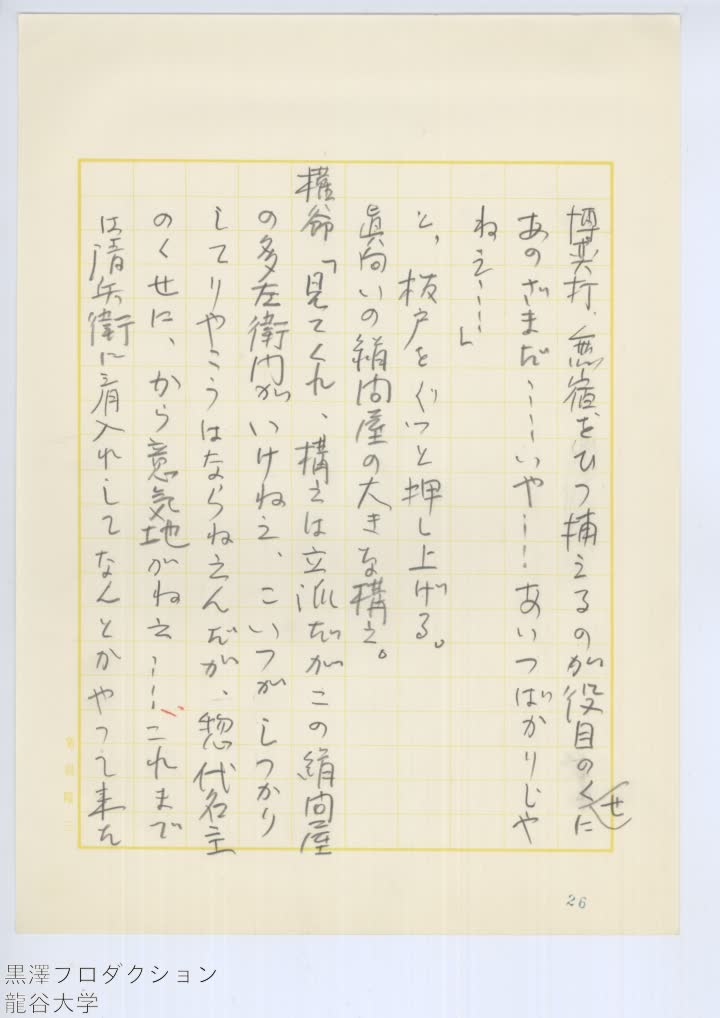 博奕打、無宿をひつ捕えるのが役目のくせに
あのざまだ……いや……あいつばかりじや
ねえ……」
と、板戸をぐつと押し上げる。
眞向いの絹問屋の大きな構え。
権爺「見てくれ、構えは立派だがこの絹問屋
の多左衛門がいけねえ、こいつがしつかり
してりやこうはならねえんだが、惣代名主
のくせに、から意気地がねえ……これまで
は清兵衛に肩入れしてなんとかやつて来た
26
黒澤プロダクション
龍谷大学